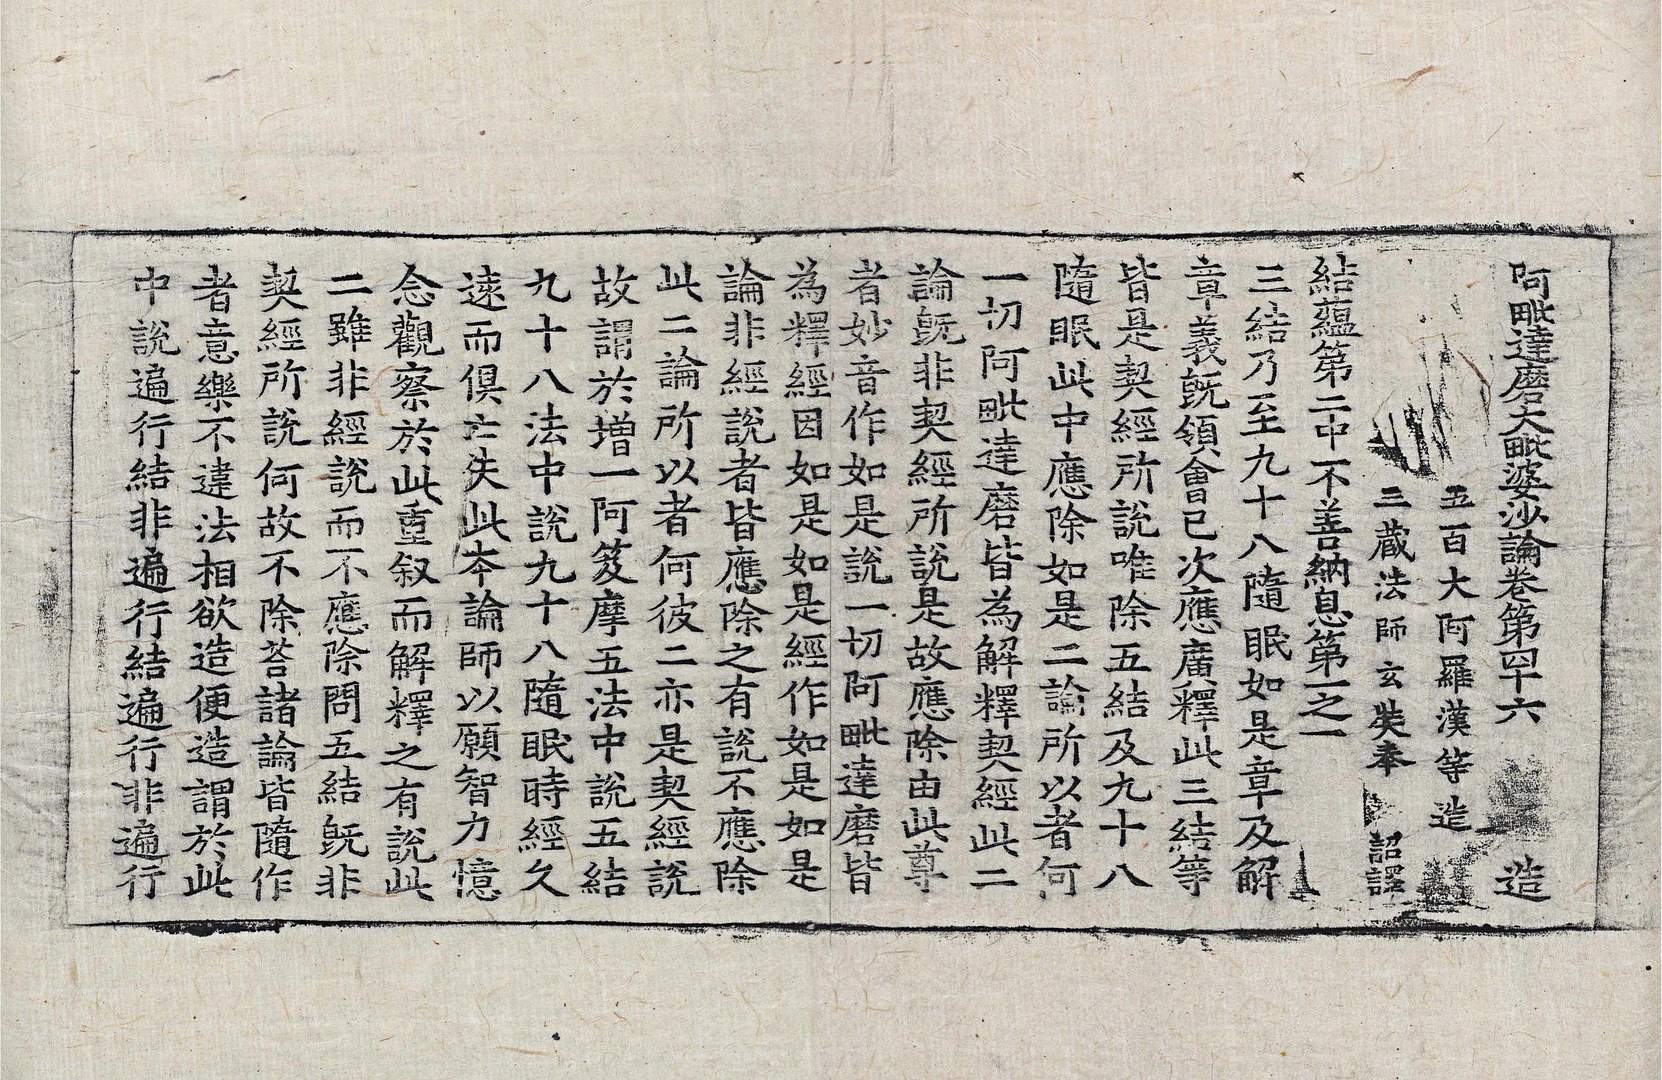 阿毗達磨大毗婆沙論卷第四十六 造
五百大阿羅漢等造
三藏法師玄奘奉 詔譯
結蘊第二中不善納息第一之一
三結乃至九十八隨眠如是章及解
章義既領會已次應廣釋此三結等
皆是契經所說唯除五結及九十八
隨眠此中應除如是二論所以者何
一切阿毗達磨皆為解釋契經此二
論既非契經所說是故應除由此尊
者妙音作如是說一切阿毗達磨皆
為釋經因如是如是經作如是如是
論非經說者皆應除之有說不應除
此二論所以者何彼二亦是契經說
故謂於增一阿笈摩五法中說五結
九十八法中說九十八隨眠時經久
遠而俱亡失此夲論師以願智力憶
念觀察於此重叙而解釋之有說此
二雖非經說而不應除問五結既非
契經所說何故不除荅諸論皆隨作
者意樂不違法相欲造便造謂於此
中說遍行結非遍行結遍行非遍行